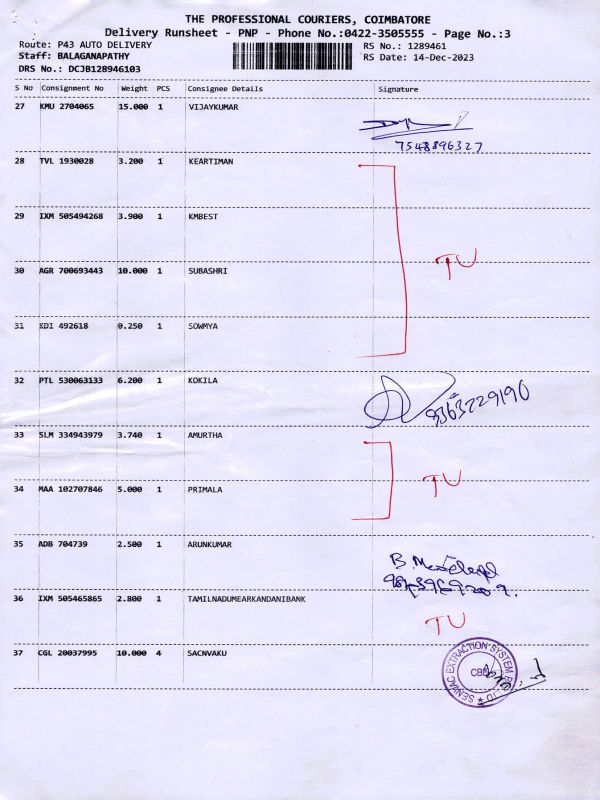 THE PROFESSIONAL COURIERS, COIMBATORE
Delivery Runsheet - PNP - Phone No.:0422-3505555 - Page No.:3
Route: P43 AUTO DELIVERY RS No.: 1289461
Staff: BALAGANAPATHY RS Date: 14-Dec-2023
DRS No.: DCJB128946103
S No Consignment No Weight PCS Consignee Details Signature
27 KMU 2704065 15.000 1 VIJAYKUMAR
7548896327
28 TVL 1930028 3.200 1 KEARTIMAN
29 IXM 505494268 3.900 1 KMBEST
TU
30 AGR 700693443 10.000 1 SUBASHRI
31 KDI 492618 0.250 1 SOWMYA
32 PTL 530063133 6.200 1 KOKILA
9363229190
33 SLM 334943979 3.740 1 AMURTHA
TU
34 MAA 102707846 5.000 1 PRIMALA
35 ADB 704739 2.500 1 ARUNKUMAR
36 IXM 505465865 2.800 1 TAMILNADUMEARKANDANIBANK
TU
37 CGL 20037995 10.000 4 SACNVAKU